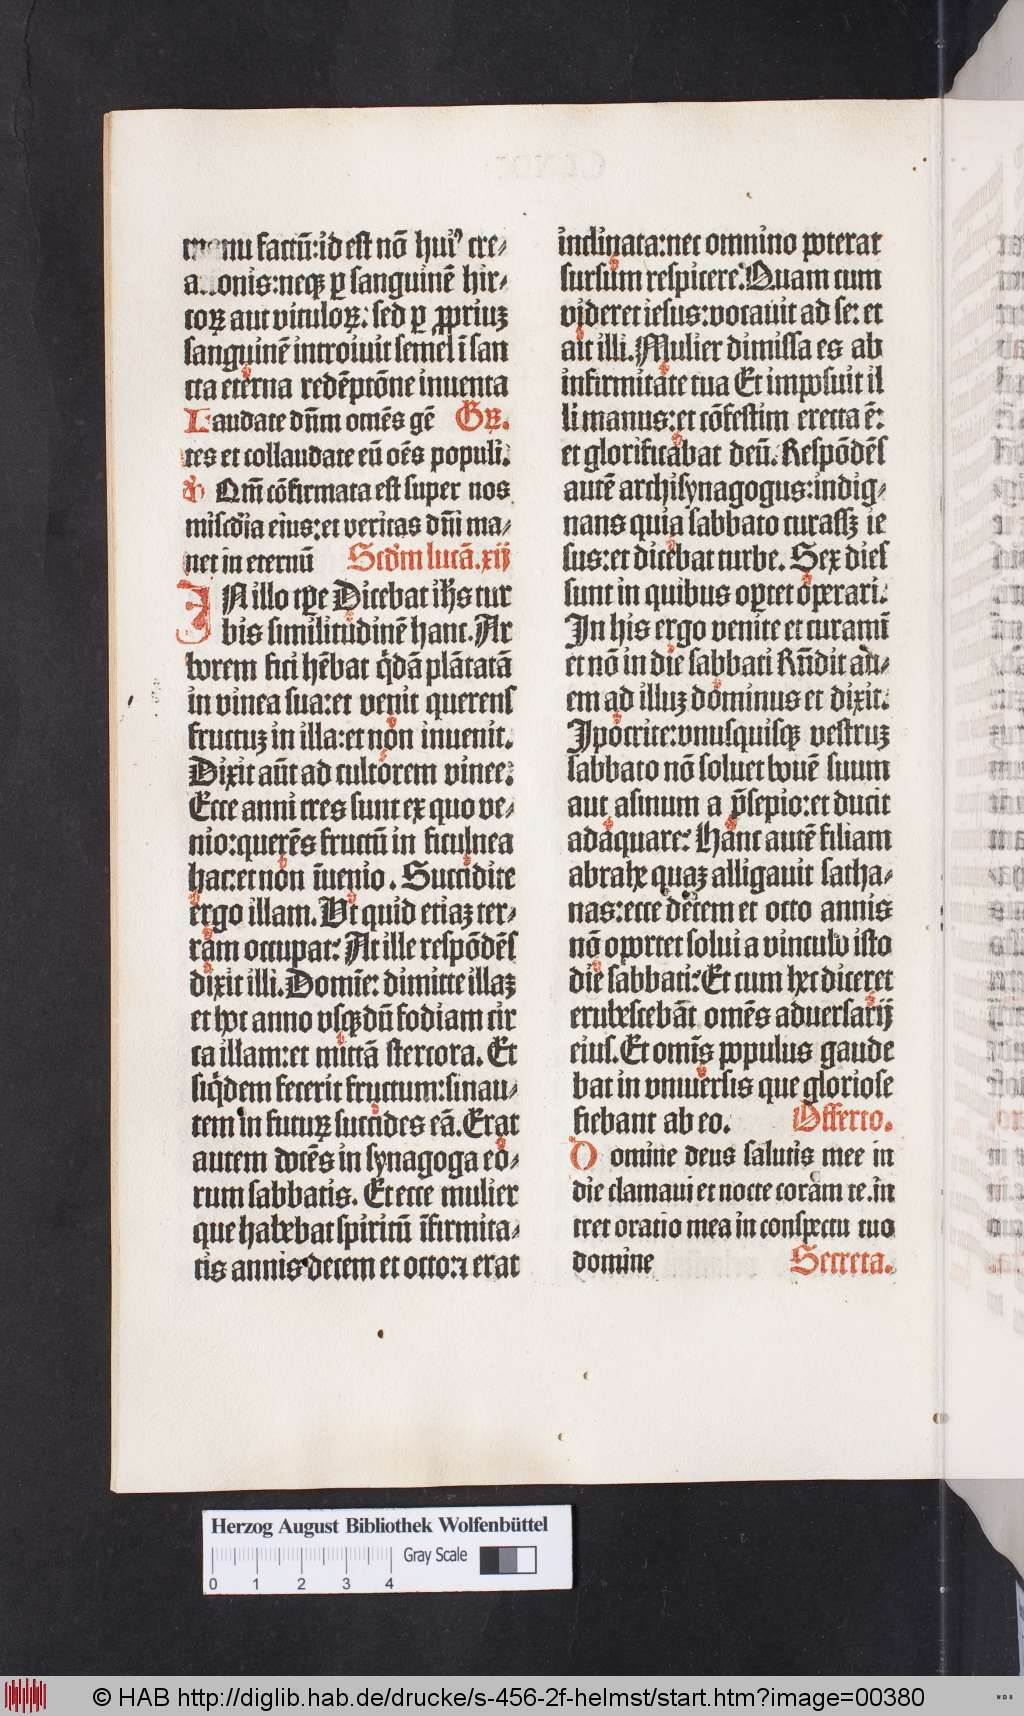 manu factū: id est nō huiꝰ cre⸗
a onis: neqꝫ ꝑ sanguinē hir⸗
corꝝ aut vituloꝝ: sed ꝑ ꝓpriuꝫ
sanguinē introiuit semel ī san
cta eterna redēptōne inuenta
Laudate dn̄m omēs gē Gꝝ.
tes et collaudate eū oēs populi.
Qm̄ cōfirmata est super nos
miscd̄ia eius: et veritas dn̄i ma⸗
net in eternū Scd̄m lucā. xij
IN illo tꝑe Dicebat ihs̄ tur
bis similitudinē hanc. Ar
borem fici hēbat qd̄ā plātatā
in vinea sua: et venit querens
fructuꝫ in illa: et non inuenit.
Dixit aūt ad cultorem vinee:
Ecce anni tres sunt ex quo ve⸗
nio: querēs fructū in ficulnea
hac: et non īuenio. Succidite
ergo illam. Vt quid etiaꝫ ter⸗
ram occupat: At ille respōdēs
dixit illi. Domīe: dimitte illaꝫ
et hoc anno vsqꝫ dū fodiam cir
ca illam: et mittā stercora. Et
siqd̄em fecerit fructum: sinau⸗
tem in futuꝝ sucides eā. Erat
autem docēs in synagoga eo⸗
rum sabbatis. Et ecce mulier
que habebat spiritū īfirmita⸗
tis annis decem et octo: ⁊ erat
inclinata: nec omnino poterat
sursum respicere: Quam cum
videret iesus: vocauit ad se: et
ait illi. Mulier dimissa es ab
infirmitate tua Et imposuit il
li manus: et cōfestim erecta ē:
et glorificabat deū. Respōdēs
autē archisynagogus: indig⸗
nans quia sabbato curassꝫ ie
sus: et dicebat turbe. Sex dies
sunt in quibus oꝑtet operari:
In his ergo venite et curamī
et nō in die sabbati Rn̄dit au⸗
em ad illuꝫ dominus et dixit:
Ipocrite: vnusquisqꝫ vestruꝫ
sabbato nō soluet bouē suum
aut asinum a p̄sepio: et ducit
adaquare: Hanc autē filiam
abrahe quaꝫ alligauit satha⸗
nas: ecce decem et octo annis
nō oportet solui a vinculo isto
die sabbati: Et cum hec diceret
erubescebāt omēs aduersarij
eius. Et omīs populus gaude
bat in vniuersis que gloriose
fiebant ab eo. Offerto.
Domine deus salutis mee in
die clamaui et nocte coram te. in
tret oratio mea in conspectu tuo
domine Secreta.
Herzog August Bibliothek Wolfenbüttel
Gray Scale
0 1 2 3 4
© HAB http://diglib.hab.de/drucke/s-456-2f-helmst/start.htm?image=00380